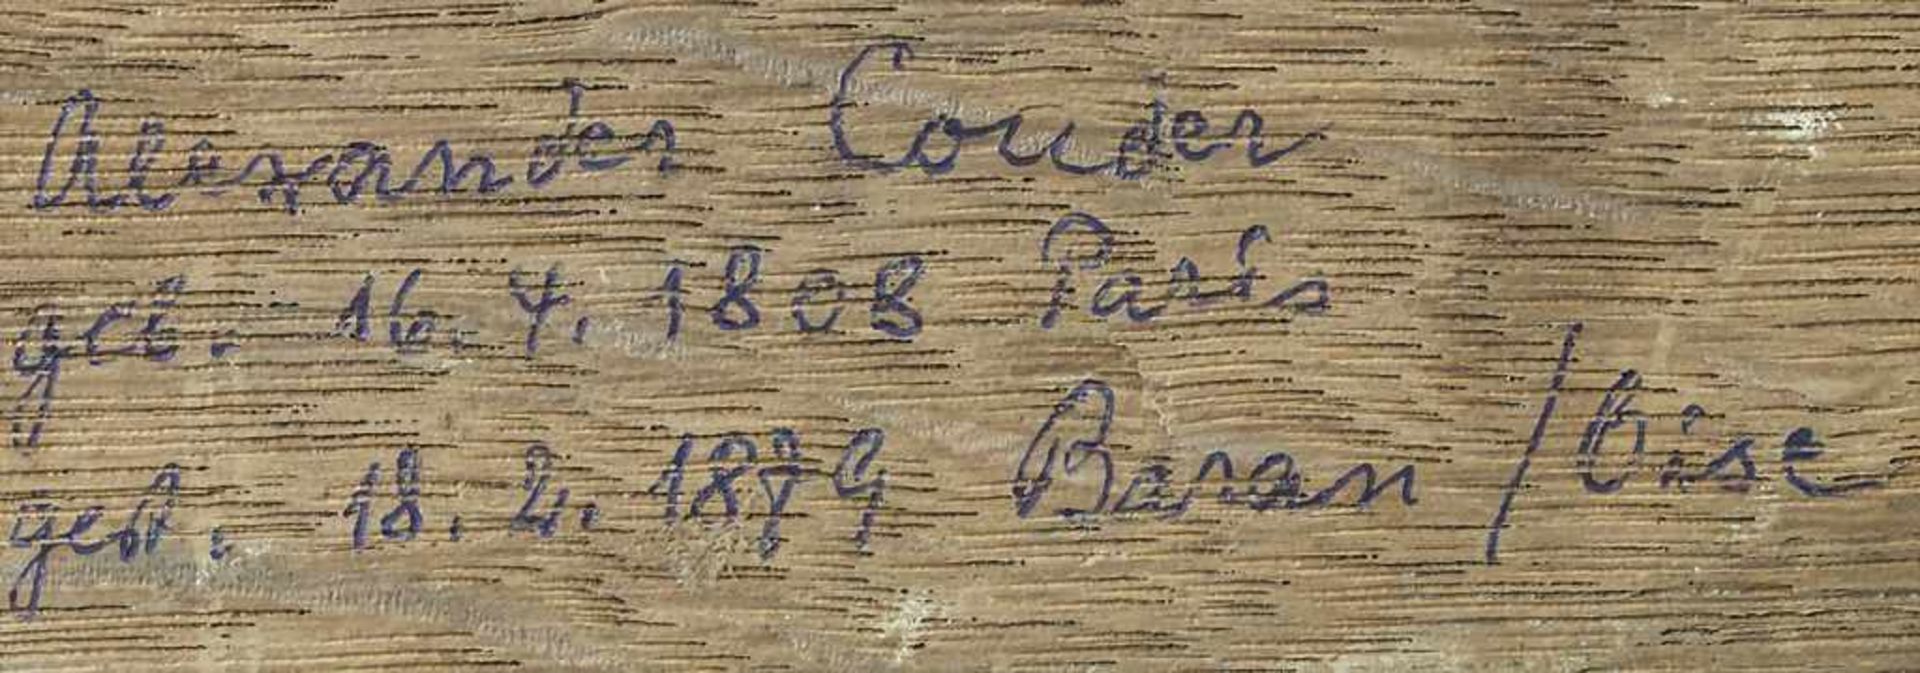 Alexander Couder
geb. 16. 4. 1808 Paris
gest. 18. 2. 1879 Baran / Oise